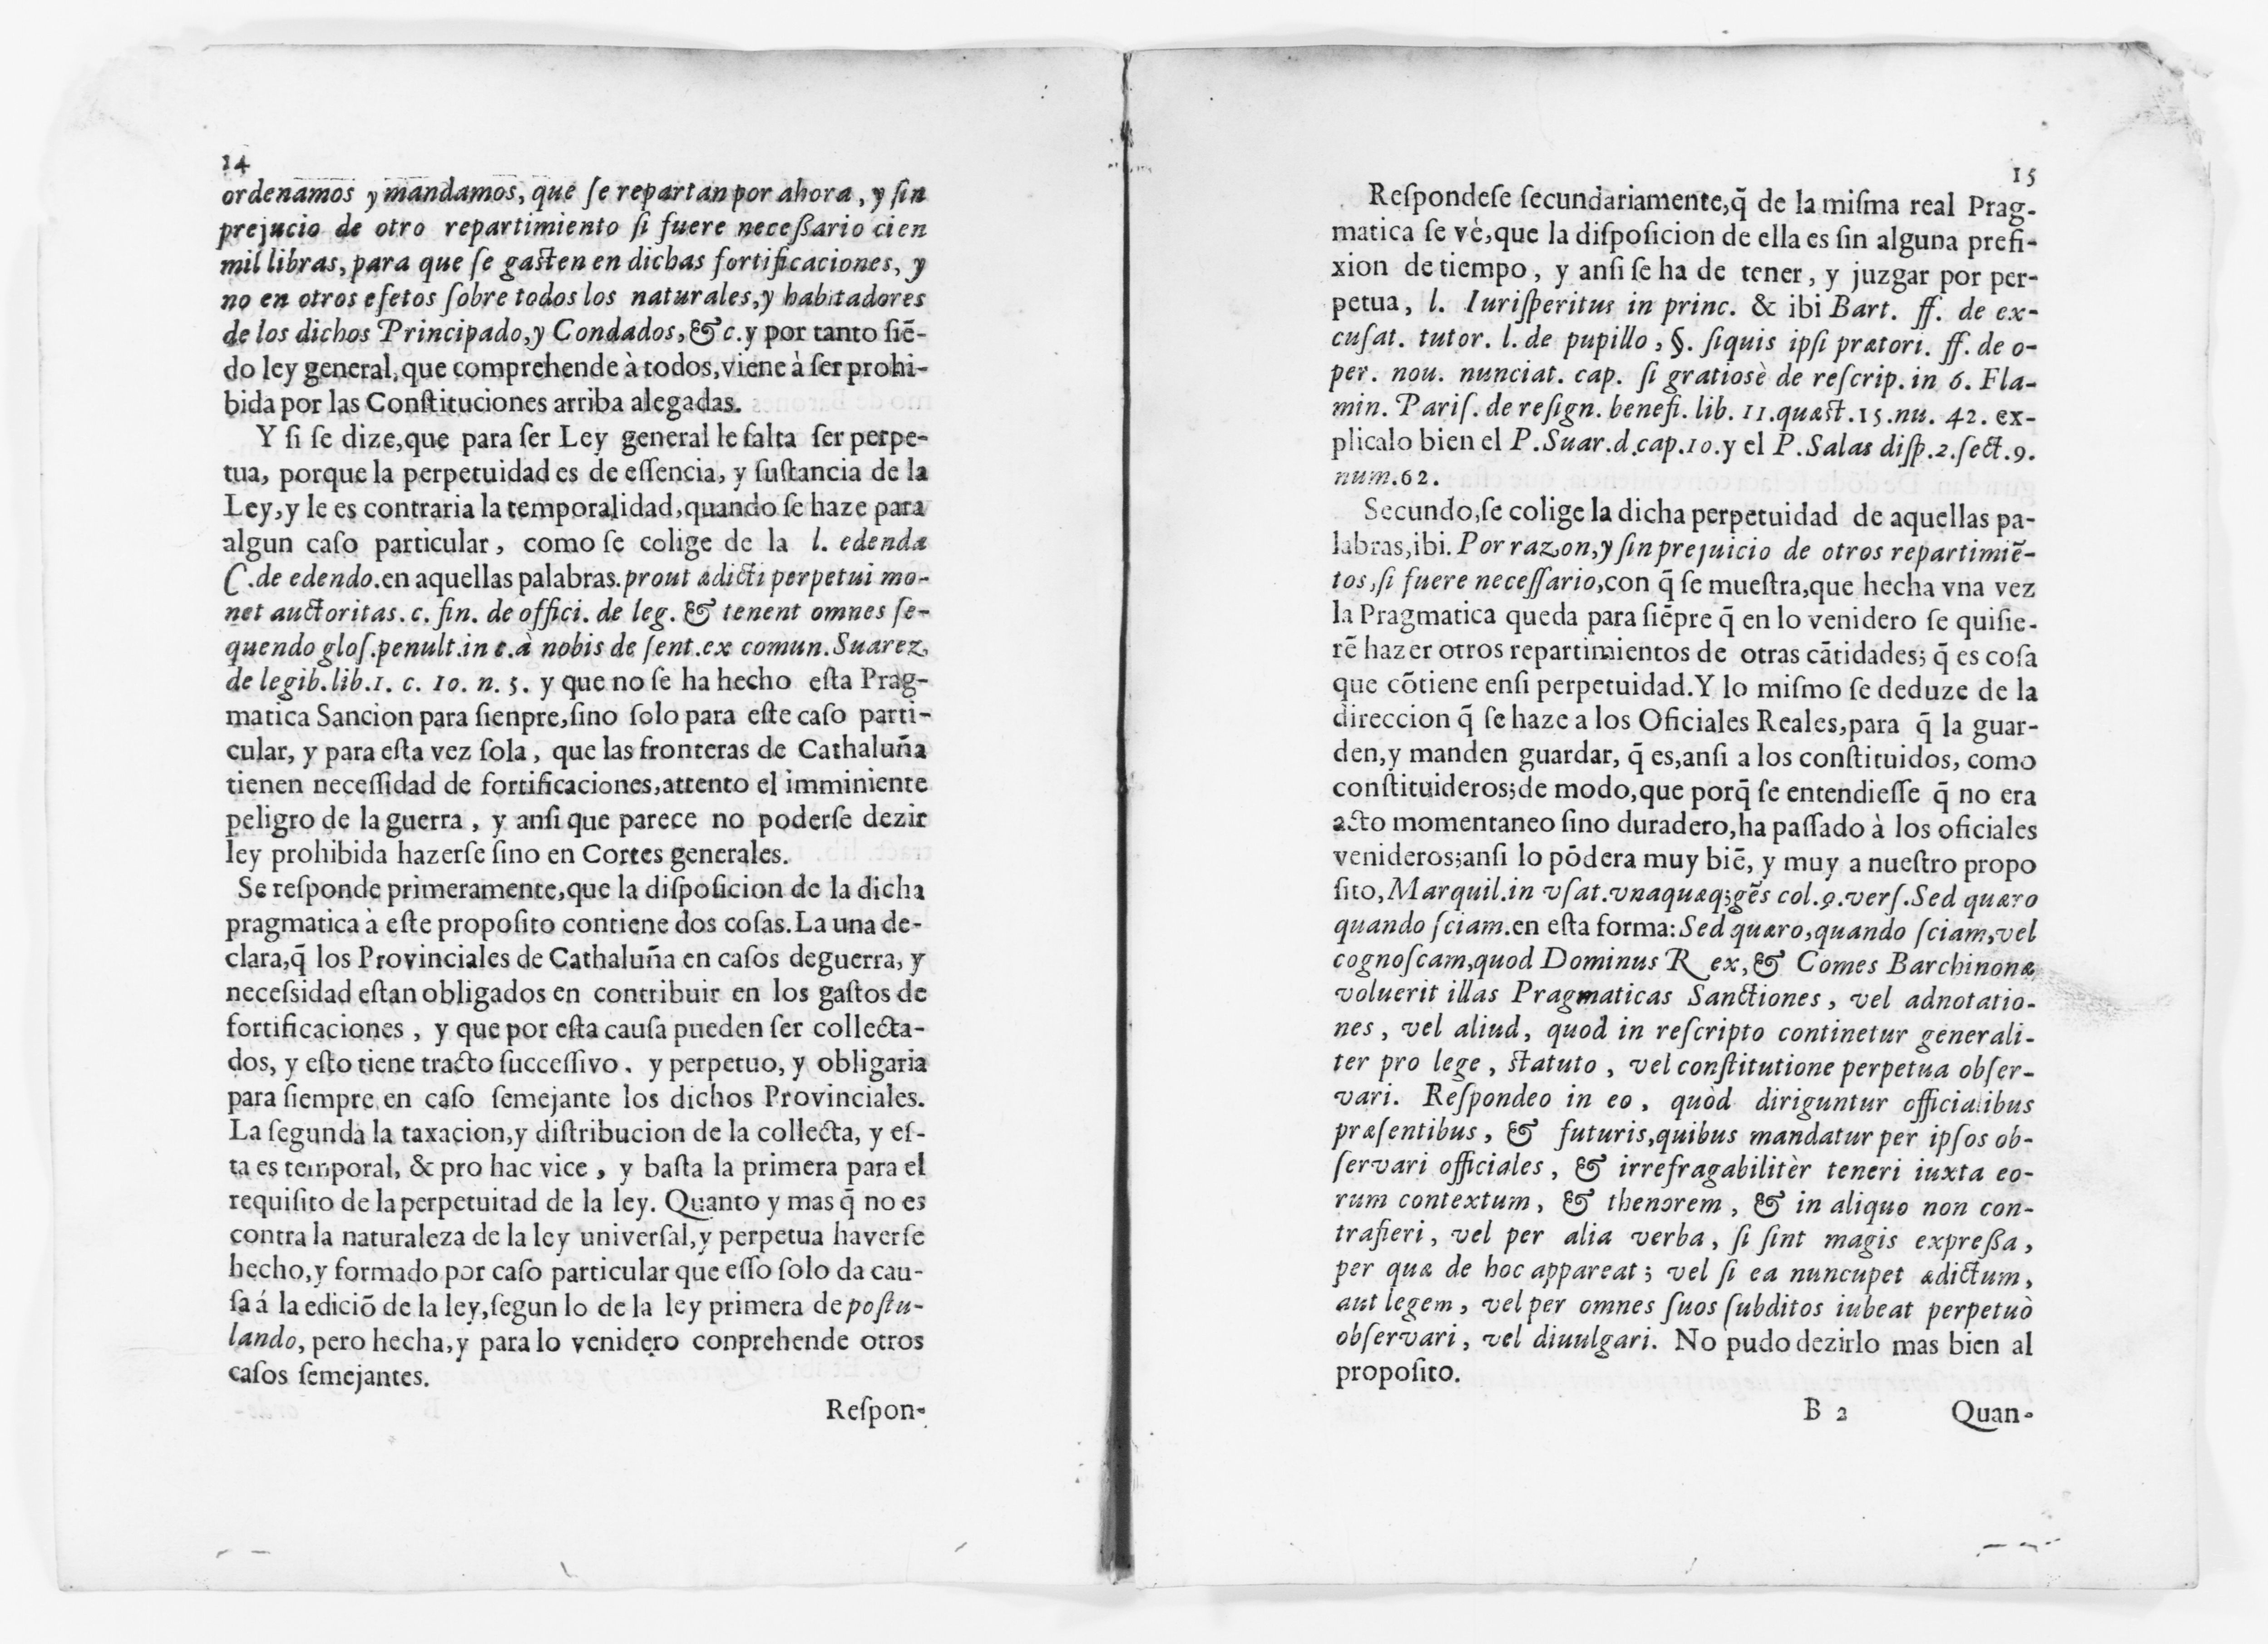 14
ordenamos y mandamos, que ſe repartan por ahora, y ſin
prejucio de otro repartimiento ſi fuere neceßario cien
mil libras, para que ſe gasten en dichas fortificaciones, y
no en otros efetos ſobre todos los naturales, y habitadores
de los dichos Principado, y Condados, &c. y por tanto ſiē-
do ley general, que comprehende à todos, viene à ſer prohi-
bida por las Conſtituciones arriba alegadas.
Y ſi ſe dize, que para ſer Ley general le falta ſer perpe-
tua, porque la perpetuidad es de eſſencia, y ſuſtancia de la
Ley, y le es contraria la temporalidad, quando ſe haze para
algun caſo particular, como ſe colige de la l. edenda
C. de edendo. en aquellas palabras. prout ædicti perpetui mo-
net auctoritas. c. fin. de offici. de leg. & tenent omnes ſe-
quendo gloſ. penult. in c. à nobis de ſent. ex comun. Suarez,
de legib. lib. 1. c. 10. n. 5. y que no ſe ha hecho eſta Prag-
matica Sancion para ſienpre, ſino ſolo para eſte caſo parti-
cular, y para eſta vez ſola, que las fronteras de Cathaluña
tienen neceſſidad de fortificaciones, attento el imminiente
peligro de la guerra, y anſi que parece no poderſe dezir
ley prohibida hazerſe ſino en Cortes generales.
Se reſponde primeramente, que la diſpoſicion de la dicha
pragmatica à eſte propoſito contiene dos coſas. La una de-
clara, q̄ los Provinciales de Cathaluña en caſos deguerra, y
neceſsidad eſtan obligados en contribuir en los gaſtos de
fortificaciones, y que por eſta cauſa pueden ſer collecta-
dos, y eſto tiene tracto ſucceſſivo. y perpetuo, y obligaria
para ſiempre en caſo ſemejante los dichos Provinciales.
La ſegunda la taxacion, y diſtribucion de la collecta, y eſ-
ta es temporal, & pro hac vice, y baſta la primera para el
requiſito de la perpetuitad de la ley. Quanto y mas q̄ no es
contra la naturaleza de la ley univerſal, y perpetua haverſe
hecho, y formado por caſo particular que eſſo ſolo da cau-
ſa á la ediciō de la ley, ſegun lo de la ley primera de poſtu-
lando, pero hecha, y para lo venidero conprehende otros
caſos ſemejantes.
Reſpon-
15
Reſpondeſe ſecundariamente, q̄ de la miſma real Prag-
matica ſe vè, que la diſpoſicion de ella es ſin alguna prefi-
xion de tiempo, y anſi ſe ha de tener, y juzgar por per-
petua, l. Iuriſperitus in princ. & ibi Bart. ff. de ex-
cuſat. tutor. l. de pupillo, §. ſiquis ipſi prætori. ff. de o-
per. nou. nunciat. cap. ſi gratiosè de reſcrip. in 6. Fla-
min. Pariſ. de reſign. benefi. lib. 11. quæſt. 15. nu. 42. ex-
plicalo bien el P. Suar. d. cap. 10. y el P. Salas diſp. 2. ſect. 9.
num. 62.
Secundo, ſe colige la dicha perpetuidad de aquellas pa-
labras, ibi. Por razon, y ſin prejuicio de otros repartimiē-
tos, ſi fuere neceſſario, con q̄ ſe mueſtra, que hecha vna vez
la Pragmatica queda para ſiēpre q̄ en lo venidero ſe quiſie-
rē hazer otros repartimientos de otras cātidades; q̄ es coſa
que cōtiene enſi perpetuidad. Y lo miſmo ſe deduze de la
direccion q̄ ſe haze a los Oficiales Reales, para q̄ la guar-
den, y manden guardar, q̄ es, anſi a los conſtituidos, como
conſtituideros; de modo, que porq̄ ſe entendieſſe q̄ no era
acto momentaneo ſino duradero, ha paſſado à los oficiales
venideros; anſi lo pōdera muy biē, y muy a nueſtro propo
ſito, Marquil. in vſat. vnaquæq; gēs col. 9. verſ. Sed quæro
quando ſciam. en eſta forma: Sed quæro, quando ſciam, vel
cognoſcam, quod Dominus Rex, & Comes Barchinonæ
voluerit illas Pragmaticas Sanctiones, vel adnotatio-
nes, vel aliud, quod in reſcripto continetur generali-
ter pro lege, ſtatuto, vel conſtitutione perpetua obſer-
vari. Reſpondeo in eo, quòd diriguntur officialibus
præſentibus, & futuris, quibus mandatur per ipſos ob-
ſervari officiales, & irrefragabilitèr teneri iuxta eo-
rum contextum, & thenorem, & in aliquo non con-
trafieri, vel per alia verba, ſi ſint magis expreßa,
per quæ de hoc appareat; vel ſi ea nuncupet ædictum,
aut legem, vel per omnes ſuos ſubditos iubeat perpetuò
obſervari, vel diuulgari. No pudo dezirlo mas bien al
propoſito.
B 2 Quan-